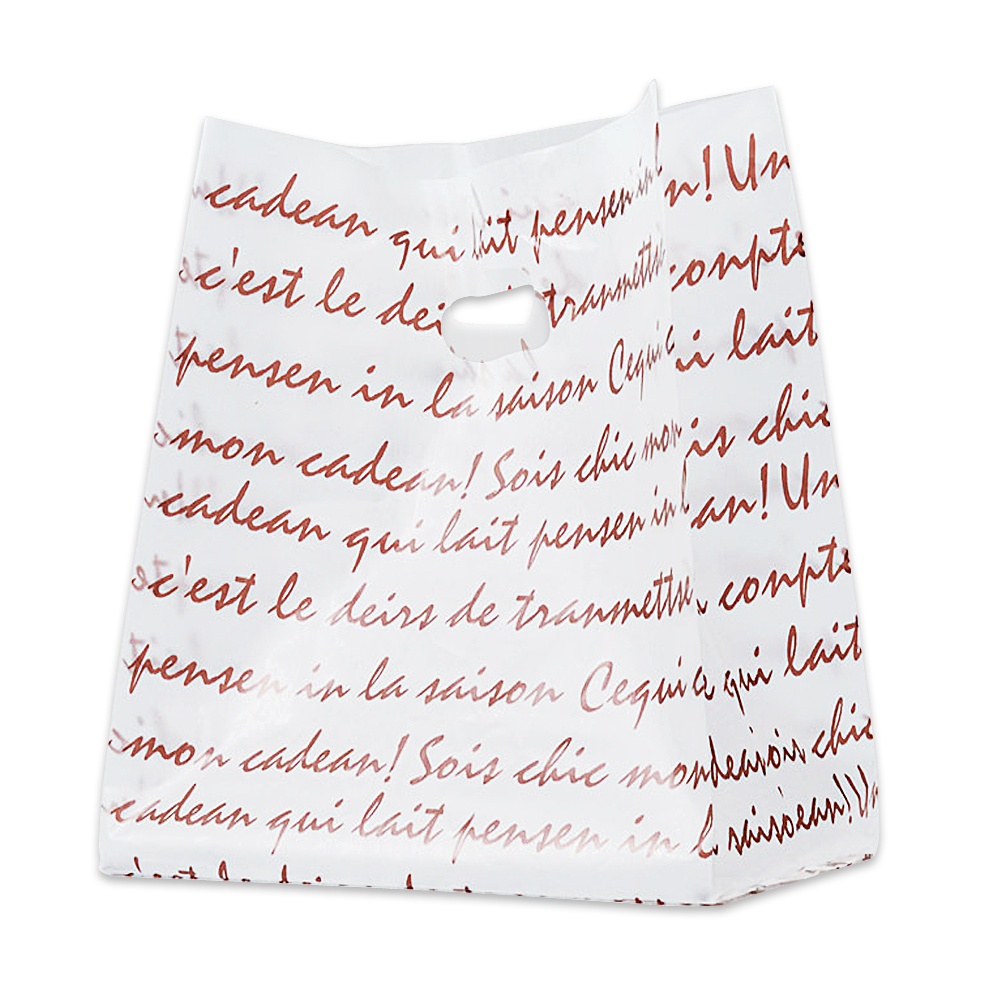 cadean qui lait pensen in l n! Un
c'est le dei tranmettse conpte
pensen in la saison Cequi c ui lait
mon cadean! Sois chic mon is chic
cadean qui lait pensen in l an! Un
c'est le deirs de tranmettse conpte
pensen in la saison Cequi a qui lait
mon cadean! Sois chic mon deaisois chic
cadean qui lait pensen in l saiso ean! Un
c'est le